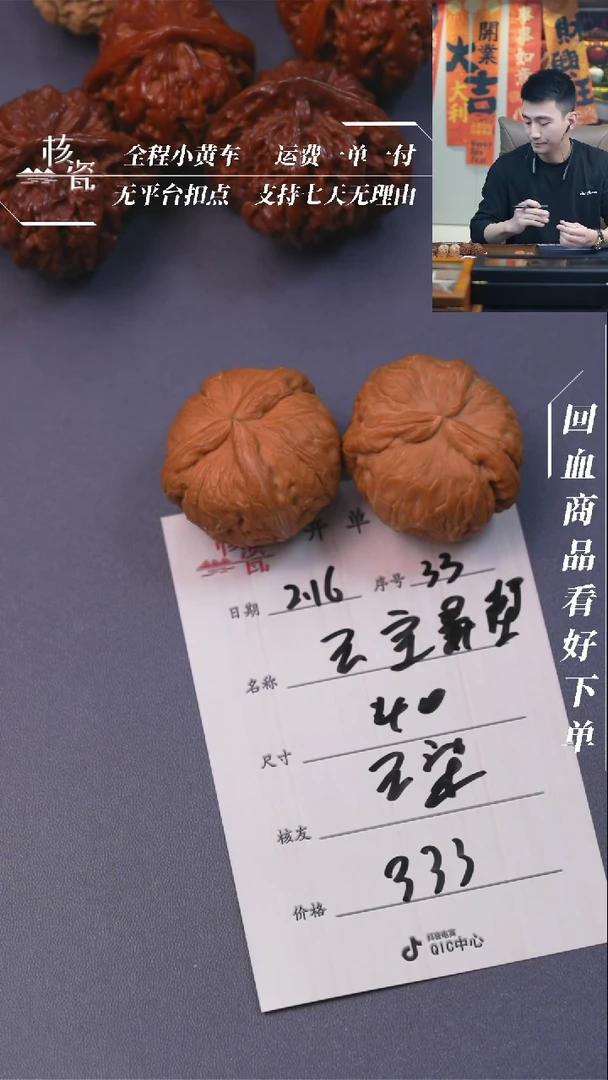 開業
大吉
大利
事事如意
財興旺
核瓷
全程小黄车 运费一单一付
无平台扣点 支持七天无理由
回血商品看好下单
核瓷
开单
日期 2.16 序号 33
名称
尺寸 40
核友 王梁
价格 333
抖音电商
QIC中心